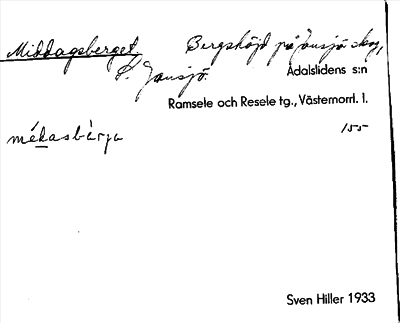 Middagsberget, Bergshöjd på Jansjö skog,
P. Jansjö. Ådalslidens s:n
Ramsele och Resele tg., Västernorrl. l.
155
mékasbàrja
Sven Hiller 1933